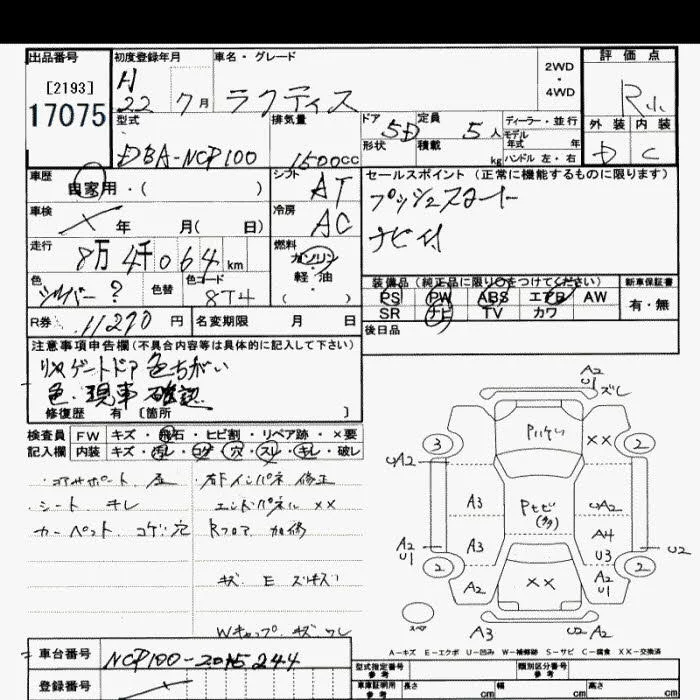 出品番号
[2193]
17075
初度登録年月
H
22 7月
車名・グレード
ラクティス
2WD
・
4WD
評価点
R
外装 内装
D C
型式
DBA-NCP100
排気量
1500cc
ドア 5D
形状
定員 5人
積載 kg
ディーラー・並行
モデル
年式 年式
ハンドル 左・右
車歴
自家用・( )
シフト
AT
セールスポイント(正常に機能するものに限ります)
プッシュスタート
ナビ付
車検
年 月( 日)
冷房
AC
走行
8万4千064km
燃料
ガソリン
軽・油
( )
色
シルバー?
色替
色コード
8T4
装備品(純正品に限り○をつけてください)
PS PW ABS エアB AW
SR ナビ TV カワ
新車保証書
有・無
R券 11270円
名変期限 月 日
後日品
注意事項申告欄(不具合内容等は具体的に記入して下さい)
リヤゲートドア色ちがい
色・現車確認
修復歴 有〔箇所 〕
検査員
記入欄
FW キズ・飛石・ヒビ割・リペア跡・×要
内装 キズ・汚レ・コゲ・穴・スレ・キレ・破レ
シート キレ
カーペット コゲ穴
右下インパネ 修正
エンドパネル ××
Rフロア 加修
キズ E
Wキャップ キズ ワレ
A2
U1
ズレ
3
××
2
A2
A3
A2
A4
A3
U3
A2
U1
U2
2
A2
××
A2
U1
2
スペア
A3
U2 A2
A-キズ E-エクボ U-凹み W-補修跡 S-サビ C-腐食 XX-交換済
車台番号
NCP100-2015244
登録番号
型式指定番号
参考
類別区分番号
参考
車庫証明用
参考
長さ cm
幅 cm
高さ cm